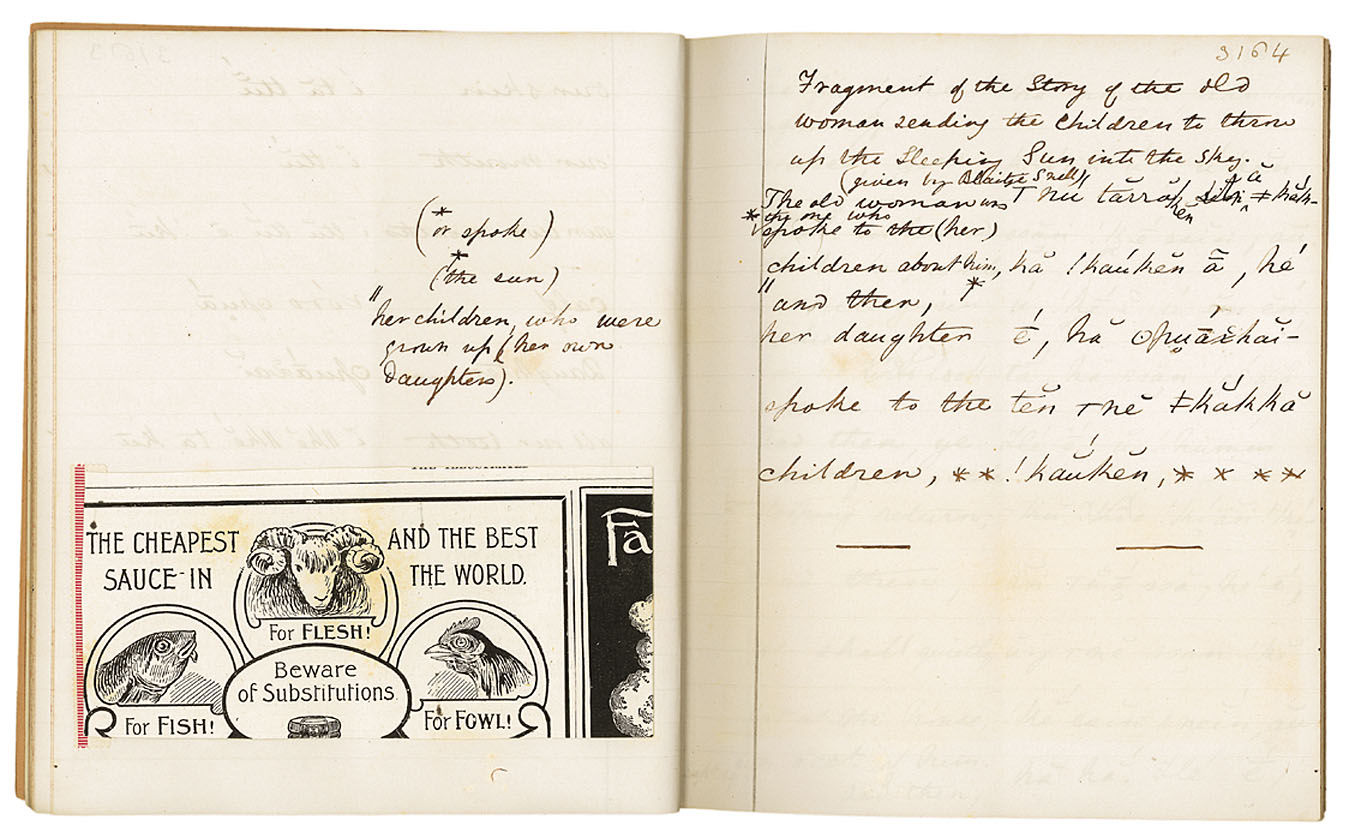 (* or spoke)
* (the sun)
" her children, who were
grown up (her own
daughters).
THE CHEAPEST
SAUCE IN
AND THE BEST
THE WORLD.
For FLESH!
Beware
of Substitutions
For FISH!
For FOWL!
Fa
3164
Fragment of the Story of the old
woman sending the Children to throw
up the Sleeping Sun into the sky.
(given by Blaitje Snell)
The old woman was
* the one who
spoke to the (her)
children about him, hă !kaúkĕn ā, hé
" and then, *
her daughter é, hă
spoke to the tĕn ⊤nĕ ǂkắkkă
children, * * !kaúkĕn, * * * *